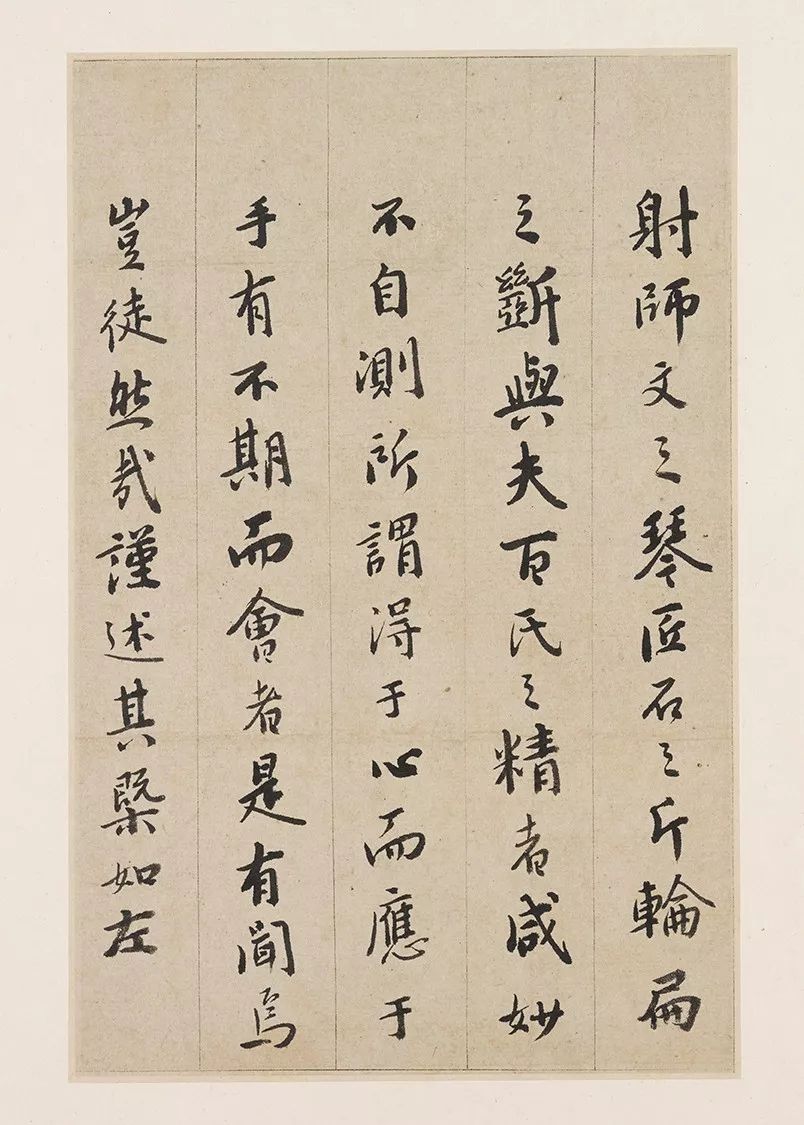 射師文之琴匠石之斤輪扁
之斵與夫百氏之精者咸妙
不自測所謂得于心而應于
手有不期而會者是有聞焉
豈徒然哉謹述其槩如左